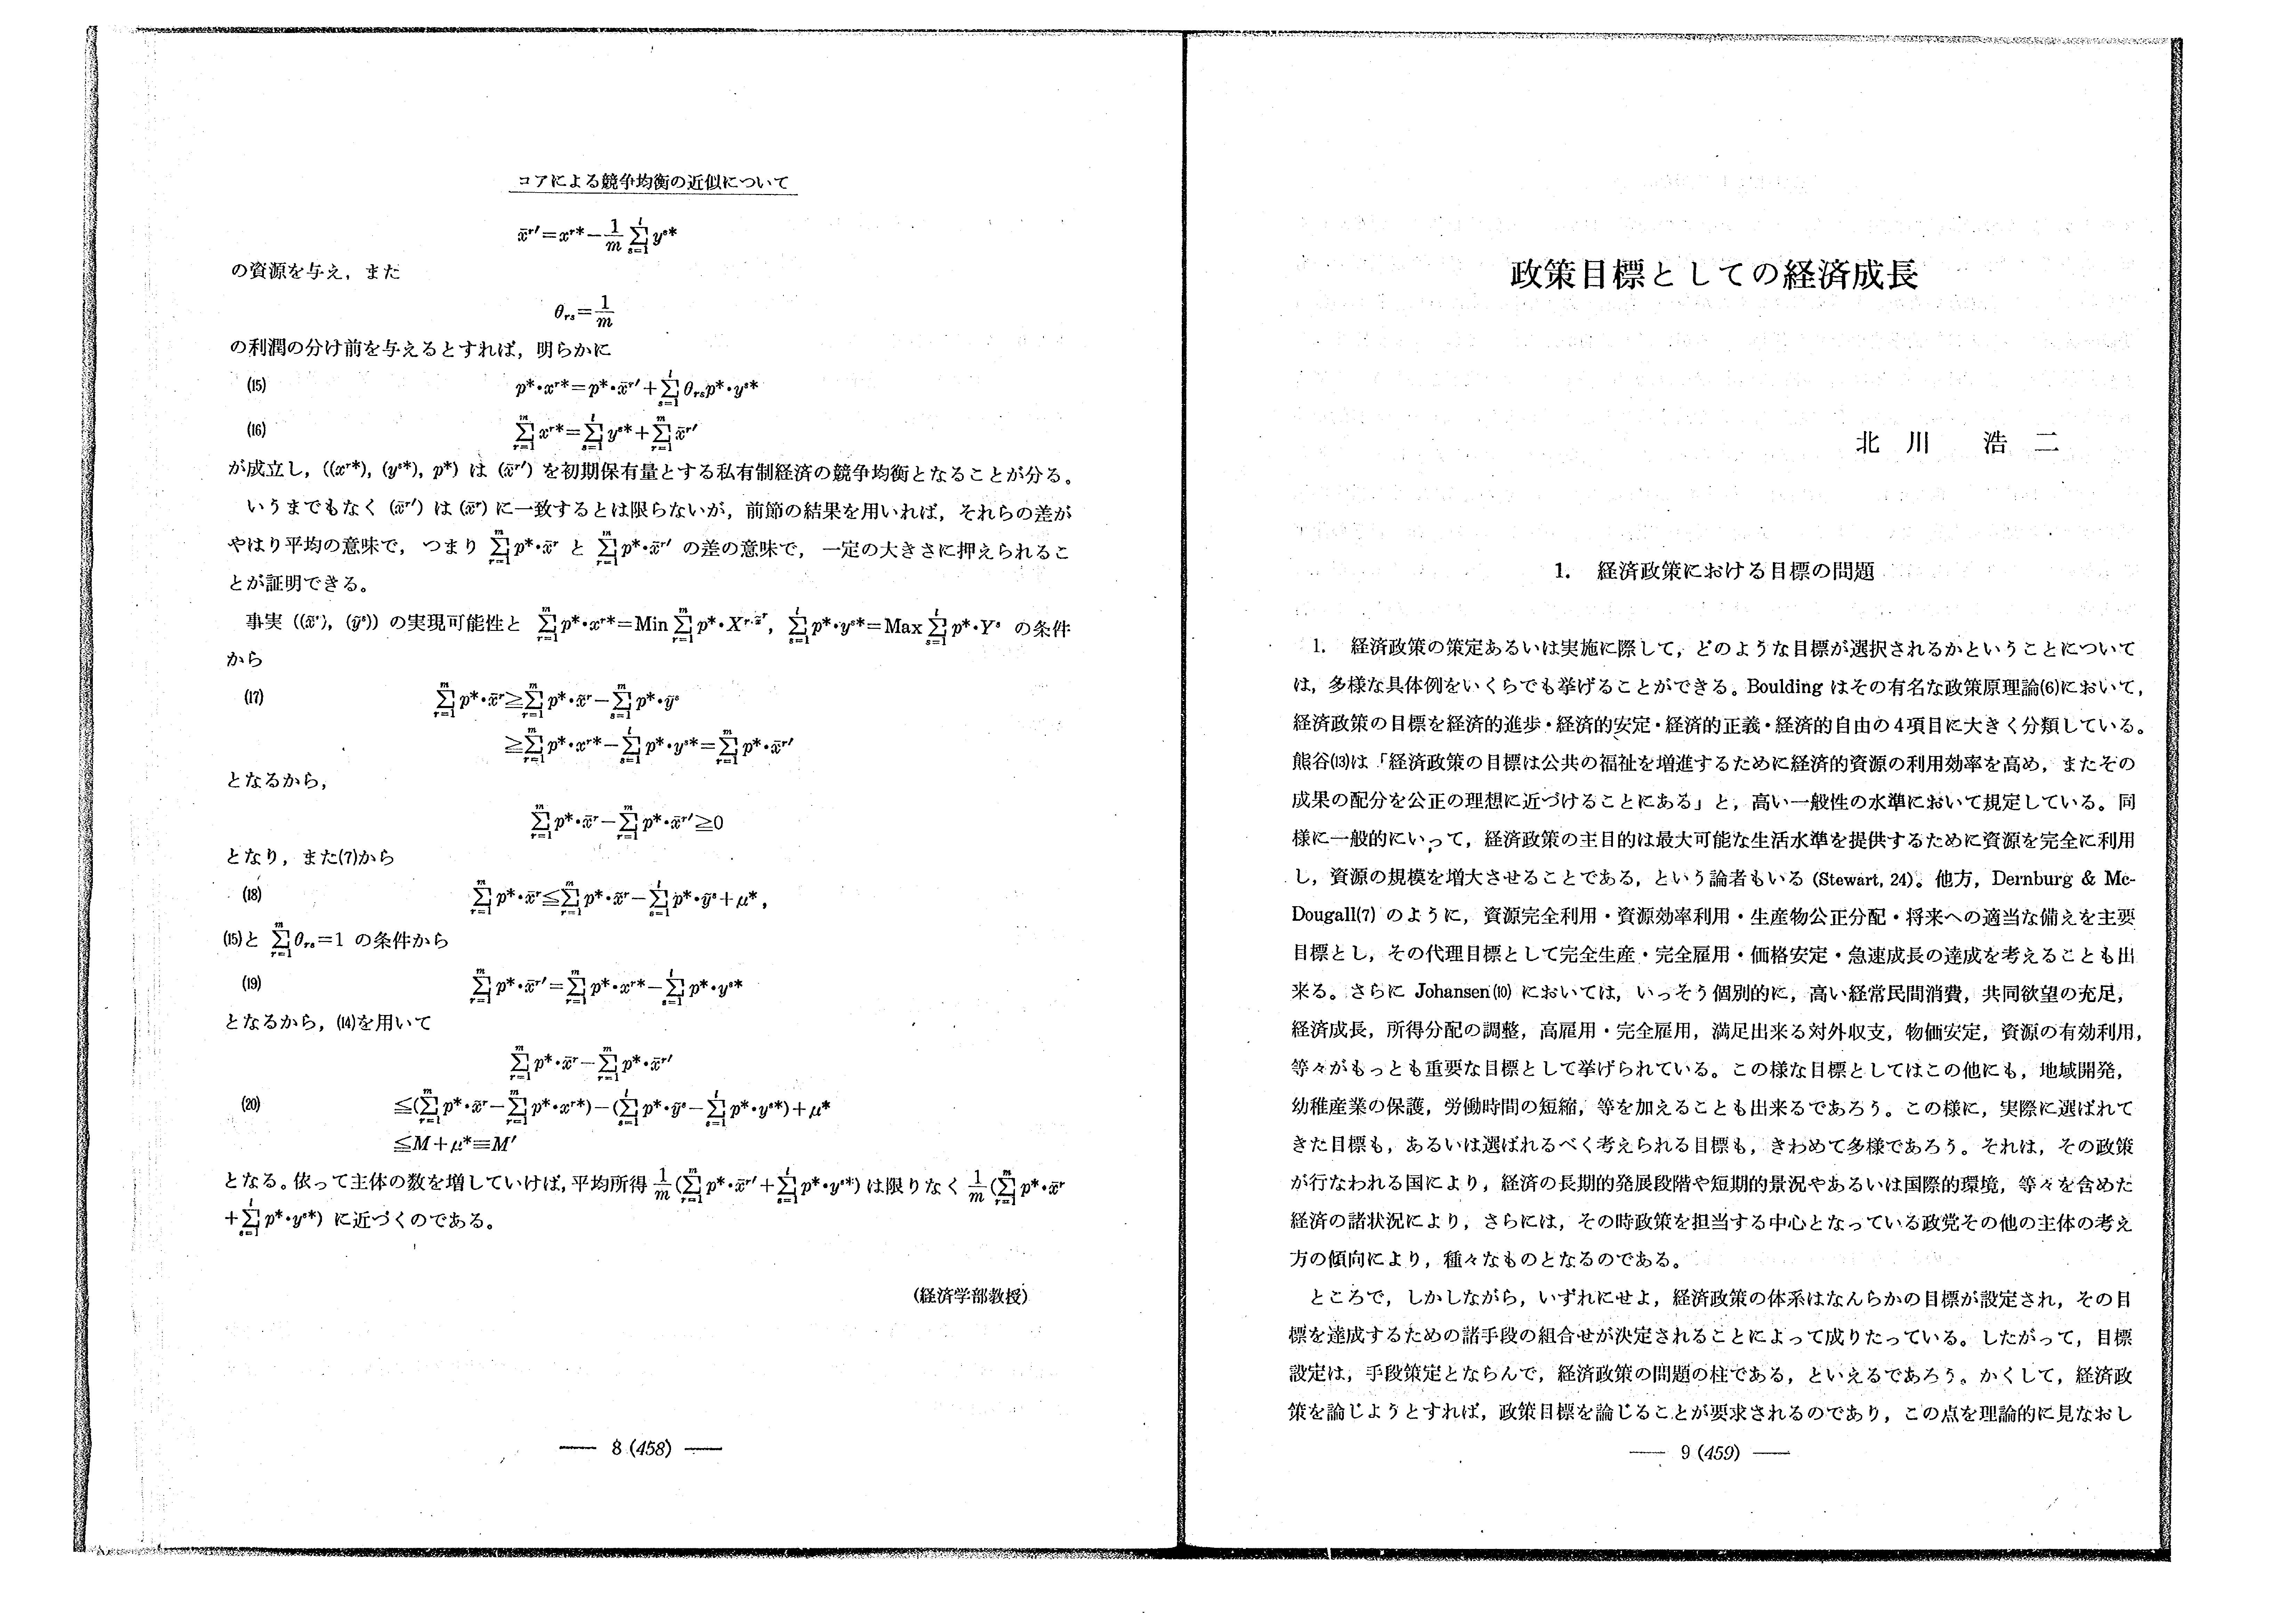 コアによる競争均衡の近似について
x̄^{r′}=x^{r*}−\frac{1}{m}\sum_{s=1}^{l}y^{s*}
の資源を与え，また
θ_{rs}=\frac{1}{m}
の利潤の分け前を与えるとすれば，明らかに
(15) p*・x^{r*}=p*・x̄^{r′}+\sum_{s=1}^{l}θ_{rs}p*・y^{s*}
(16) \sum_{r=1}^{m}x^{r*}=\sum_{s=1}^{l}y^{s*}+\sum_{r=1}^{m}x̄^{r′}
が成立し，((x^{r*}), (y^{s*}), p*) は (x̄^{r′}) を初期保有量とする私有制経済の競争均衡となることが分る。
いうまでもなく (x̄^{r′}) は (x̄^{r}) に一致するとは限らないが，前節の結果を用いれば，それらの差が
やはり平均の意味で，つまり \sum_{r=1}^{m}p*・x̄^{r} と \sum_{r=1}^{m}p*・x̄^{r′} の差の意味で，一定の大きさに押えられるこ
とが証明できる。
事実 ((x̃^{r}), (ỹ^{s})) の実現可能性と \sum_{r=1}^{m}p*・x^{r*}=Min\sum_{r=1}^{m}p*・X^{r・x̃^{r}}, \sum_{s=1}^{l}p*・y^{s*}=Max\sum_{s=1}^{l}p*・Y^{s} の条件
から
(17) \sum_{r=1}^{m}p*・x̄^{r}≧\sum_{r=1}^{m}p*・x̃^{r}−\sum_{s=1}^{m}p*・ỹ^{s}
≧\sum_{r=1}^{m}p*・x^{r*}−\sum_{s=1}^{l}p*・y^{s*}=\sum_{r=1}^{m}p*・x̄^{r′}
となるから，
\sum_{r=1}^{m}p*・x̄^{r}−\sum_{r=1}^{m}p*・x̄^{r′}≧0
となり，また(7)から
(18) \sum_{r=1}^{m}p*・x̄^{r}≦\sum_{r=1}^{m}p*・x̃^{r}−\sum_{s=1}^{l}p*・ỹ^{s}+μ*,
(15)と \sum_{r=1}^{m}θ_{rs}=1 の条件から
(19) \sum_{r=1}^{m}p*・x̄^{r′}=\sum_{r=1}^{m}p*・x^{r*}−\sum_{s=1}^{l}p*・y^{s*}
となるから，(14)を用いて
\sum_{r=1}^{m}p*・x̄^{r}−\sum_{r=1}^{m}p*・x̄^{r′}
(20) ≦(\sum_{r=1}^{m}p*・x̃^{r}−\sum_{r=1}^{m}p*・x^{r*})−(\sum_{s=1}^{l}p*・ỹ^{s}−\sum_{s=1}^{l}p*・y^{s*})+μ*
≦M+μ*≡M′
となる。依って主体の数を増していけば，平均所得 \frac{1}{m}(\sum_{r=1}^{m}p*・x̄^{r′}+\sum_{s=1}^{l}p*・y^{s*}) は限りなく \frac{1}{m}(\sum_{r=1}^{m}p*・x̄^{r}
+\sum_{s=1}^{l}p*・y^{s*}) に近づくのである。
(経済学部教授)
— 8 (458) —
政策目標としての経済成長
北川 浩二
1. 経済政策における目標の問題
1. 経済政策の策定あるいは実施に際して，どのような目標が選択されるかということについて
は，多様な具体例をいくらでも挙げることができる。Boulding はその有名な政策原理論(6)において，
経済政策の目標を経済的進歩・経済的安定・経済的正義・経済的自由の4項目に大きく分類している。
熊谷(13)は「経済政策の目標は公共の福祉を増進するために経済的資源の利用効率を高め，またその
成果の配分を公正の理想に近づけることにある」と，高い一般性の水準において規定している。同
様に一般的にいって，経済政策の主目的は最大可能な生活水準を提供するために資源を完全に利用
し，資源の規模を増大させることである，という論者もいる (Stewart, 24)。他方，Dernburg & Mc-
Dougall(7) のように，資源完全利用・資源効率利用・生産物公正分配・将来への適当な備えを主要
目標とし，その代理目標として完全生産・完全雇用・価格安定・急速成長の達成を考えることも出
来る。さらに Johansen(10) においては，いっそう個別的に，高い経常民間消費，共同欲望の充足，
経済成長，所得分配の調整，高雇用・完全雇用，満足出来る対外収支，物価安定，資源の有効利用，
等々がもっとも重要な目標として挙げられている。この様な目標としてはこの他にも，地域開発，
幼稚産業の保護，労働時間の短縮，等を加えることも出来るであろう。この様に，実際に選ばれて
きた目標も，あるいは選ばれるべく考えられる目標も，きわめて多様であろう。それは，その政策
が行なわれる国により，経済の長期的発展段階や短期的景況やあるいは国際的環境，等々を含めた
経済の諸状況により，さらには，その時政策を担当する中心となっている政党その他の主体の考え
方の傾向により，種々なものとなるのである。
ところで，しかしながら，いずれにせよ，経済政策の体系はなんらかの目標が設定され，その目
標を達成するための諸手段の組合せが決定されることによって成りたっている。したがって，目標
設定は，手段策定とならんで，経済政策の問題の柱である，といえるであろう。かくして，経済政
策を論じようとすれば，政策目標を論じることが要求されるのであり，この点を理論的に見なおし
— 9 (459) —